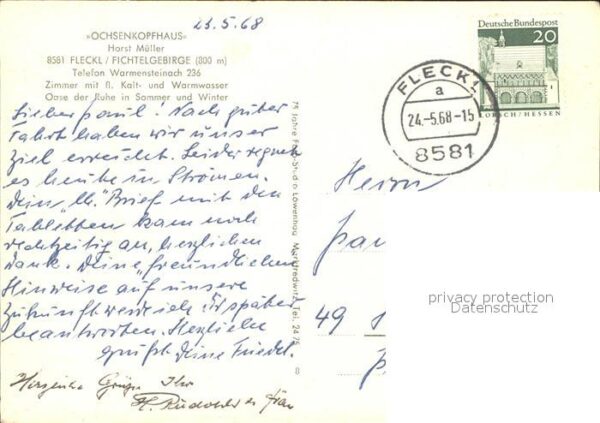 23.5.68
»OCHSENKOPFHAUS«
Horst Müller
8581 FLECKL / FICHTELGEBIRGE (800 m)
Telefon Warmensteinach 236
Zimmer mit fl. Kalt- und Warmwasser
Oase der Ruhe in Sommer und Winter
Lieber Nach guter
Fahrt haben wir unser
Ziel erreicht. Leider regnet
es heute in Strömen.
Dein Brief mit den
Tabletten kam noch
rechtzeitig an, herzlichen
Dank. Deine „freundlichen
Hinweise auf unsere
Zukunft werde ich Dir später
beantworten. Herzlich
grüßt Deine Friedel.
Herzliche Grüße Ihr
Frau
75 Jahre Foto-Studio Löwenhag Marktredwitz Tel. 24 75
8
Deutsche Bundespost
20
LORSCH/HESSEN
FLECKL
a
24.-5.68-15
8581
Herrn
49
privacy protection
Datenschutz